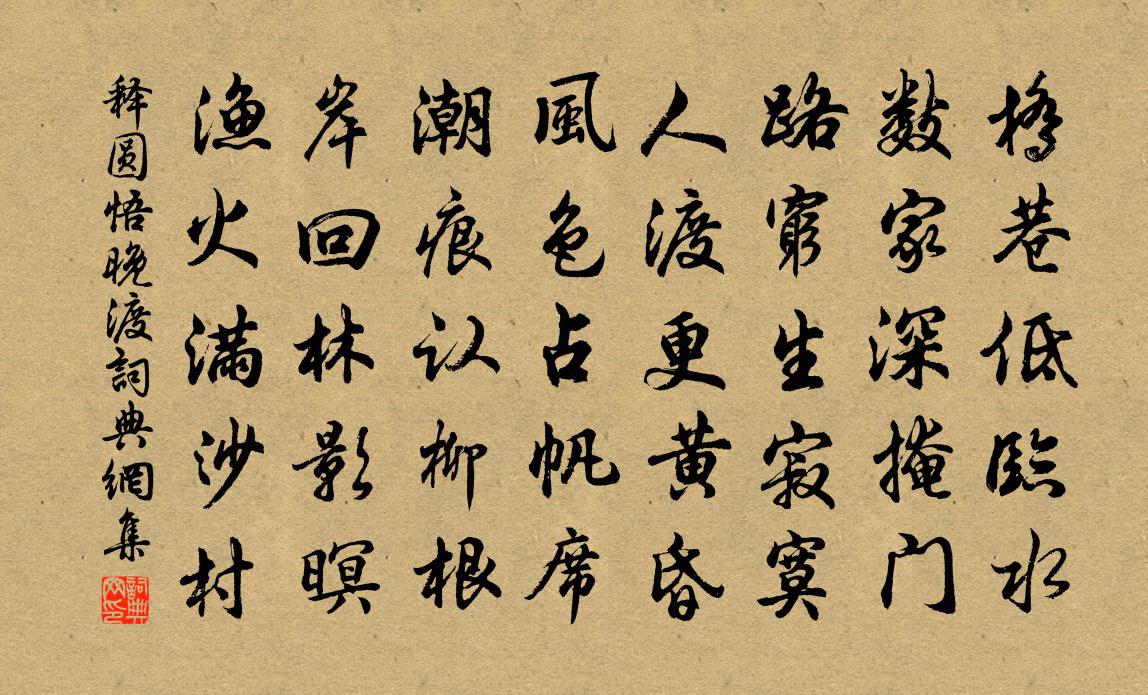 橋巷低臨水
數家深掩門
路窮生寂寞
人渡更黃昏
風色占帆席
潮痕认柳根
岸回林影暝
漁火滿沙村
释圓悟晚渡詞典網集
詞典网印